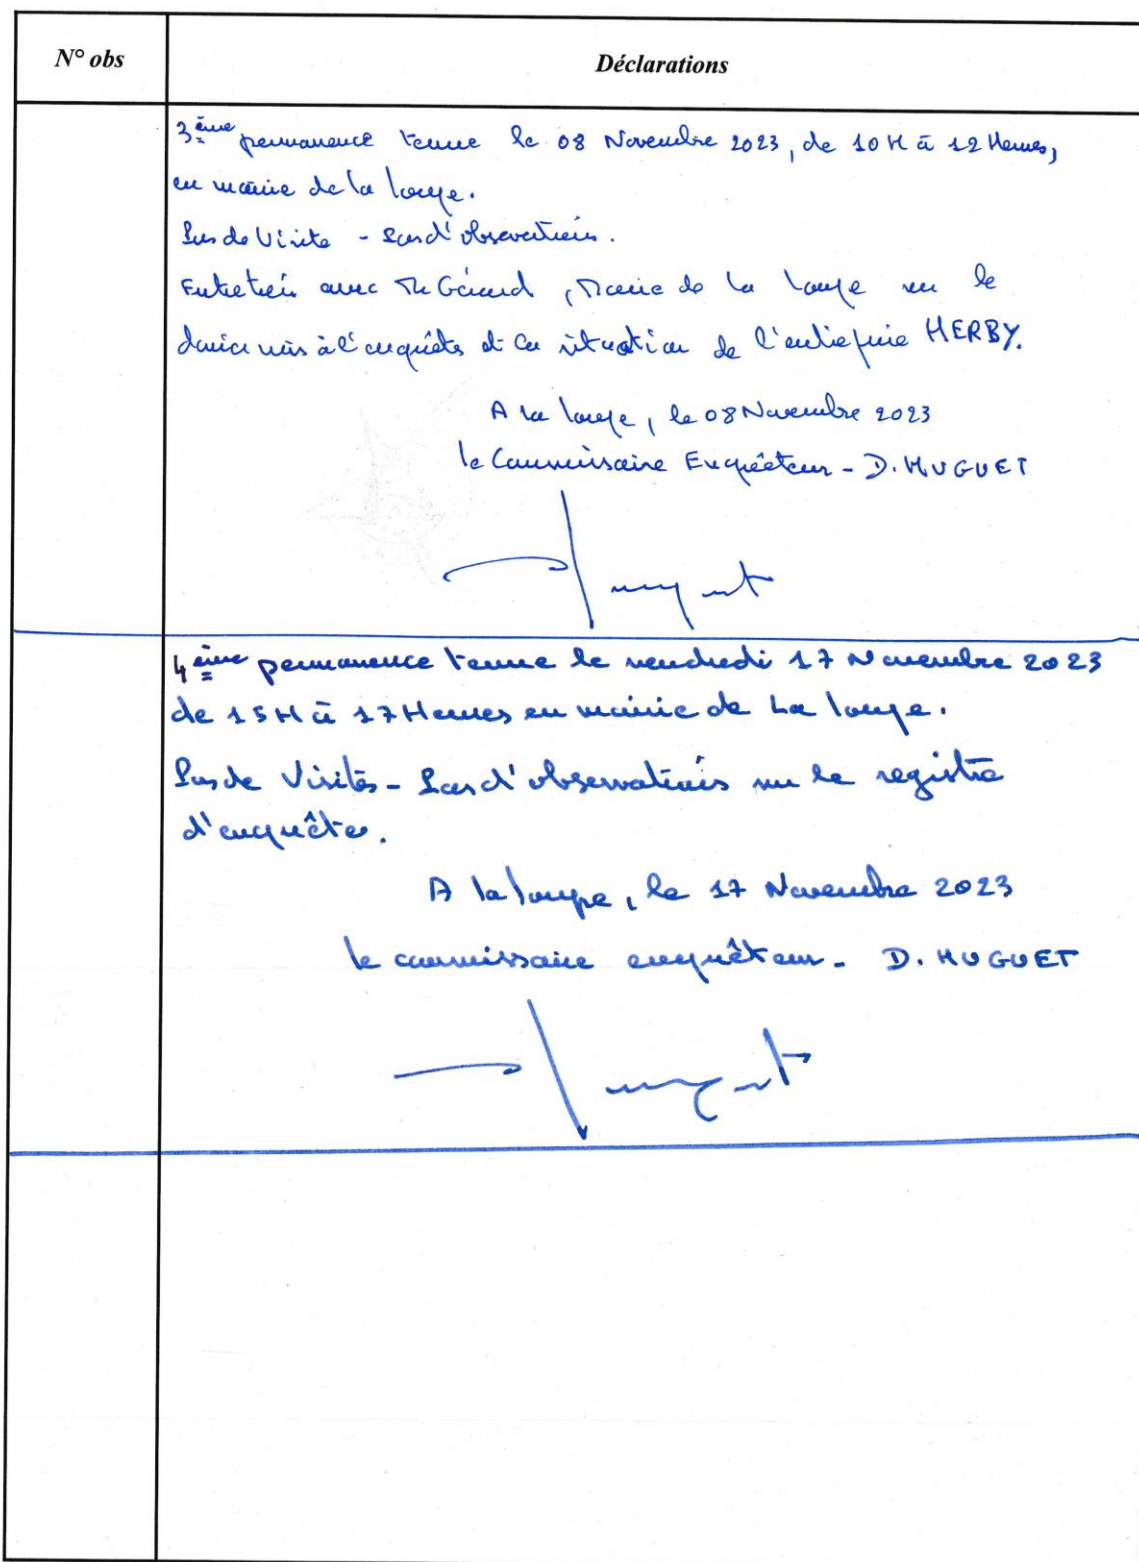 N° obs
Déclarations
3ème permanence tenue le 08 Novembre 2023, de 10 H à 12 Heures,
en mairie de la loupe.
Pas de Visite - Pas d'observation.
Entretien avec Mr Gérard, Maire de la loupe sur le
dossier mis à l'enquête et la situation de l'entreprise HERBY.
A la loupe, le 08 Novembre 2023
le Commissaire Enquêteur - D. HUGUET
4ème permanence tenue le vendredi 17 Novembre 2023
de 15 H à 17 Heures en mairie de La loupe.
Pas de Visites - Pas d'observations sur le registre
d'enquête.
A la loupe, le 17 Novembre 2023
le commissaire enquêteur - D. HUGUET